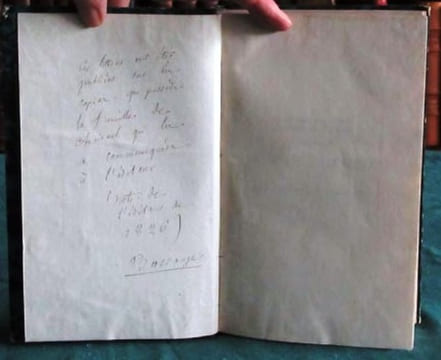 Ces lettres ont été
publiées sur les
copies que possède
la famille de
qui les
a communiquées
à l'éditeur
(note de
l'éditeur de
1826)